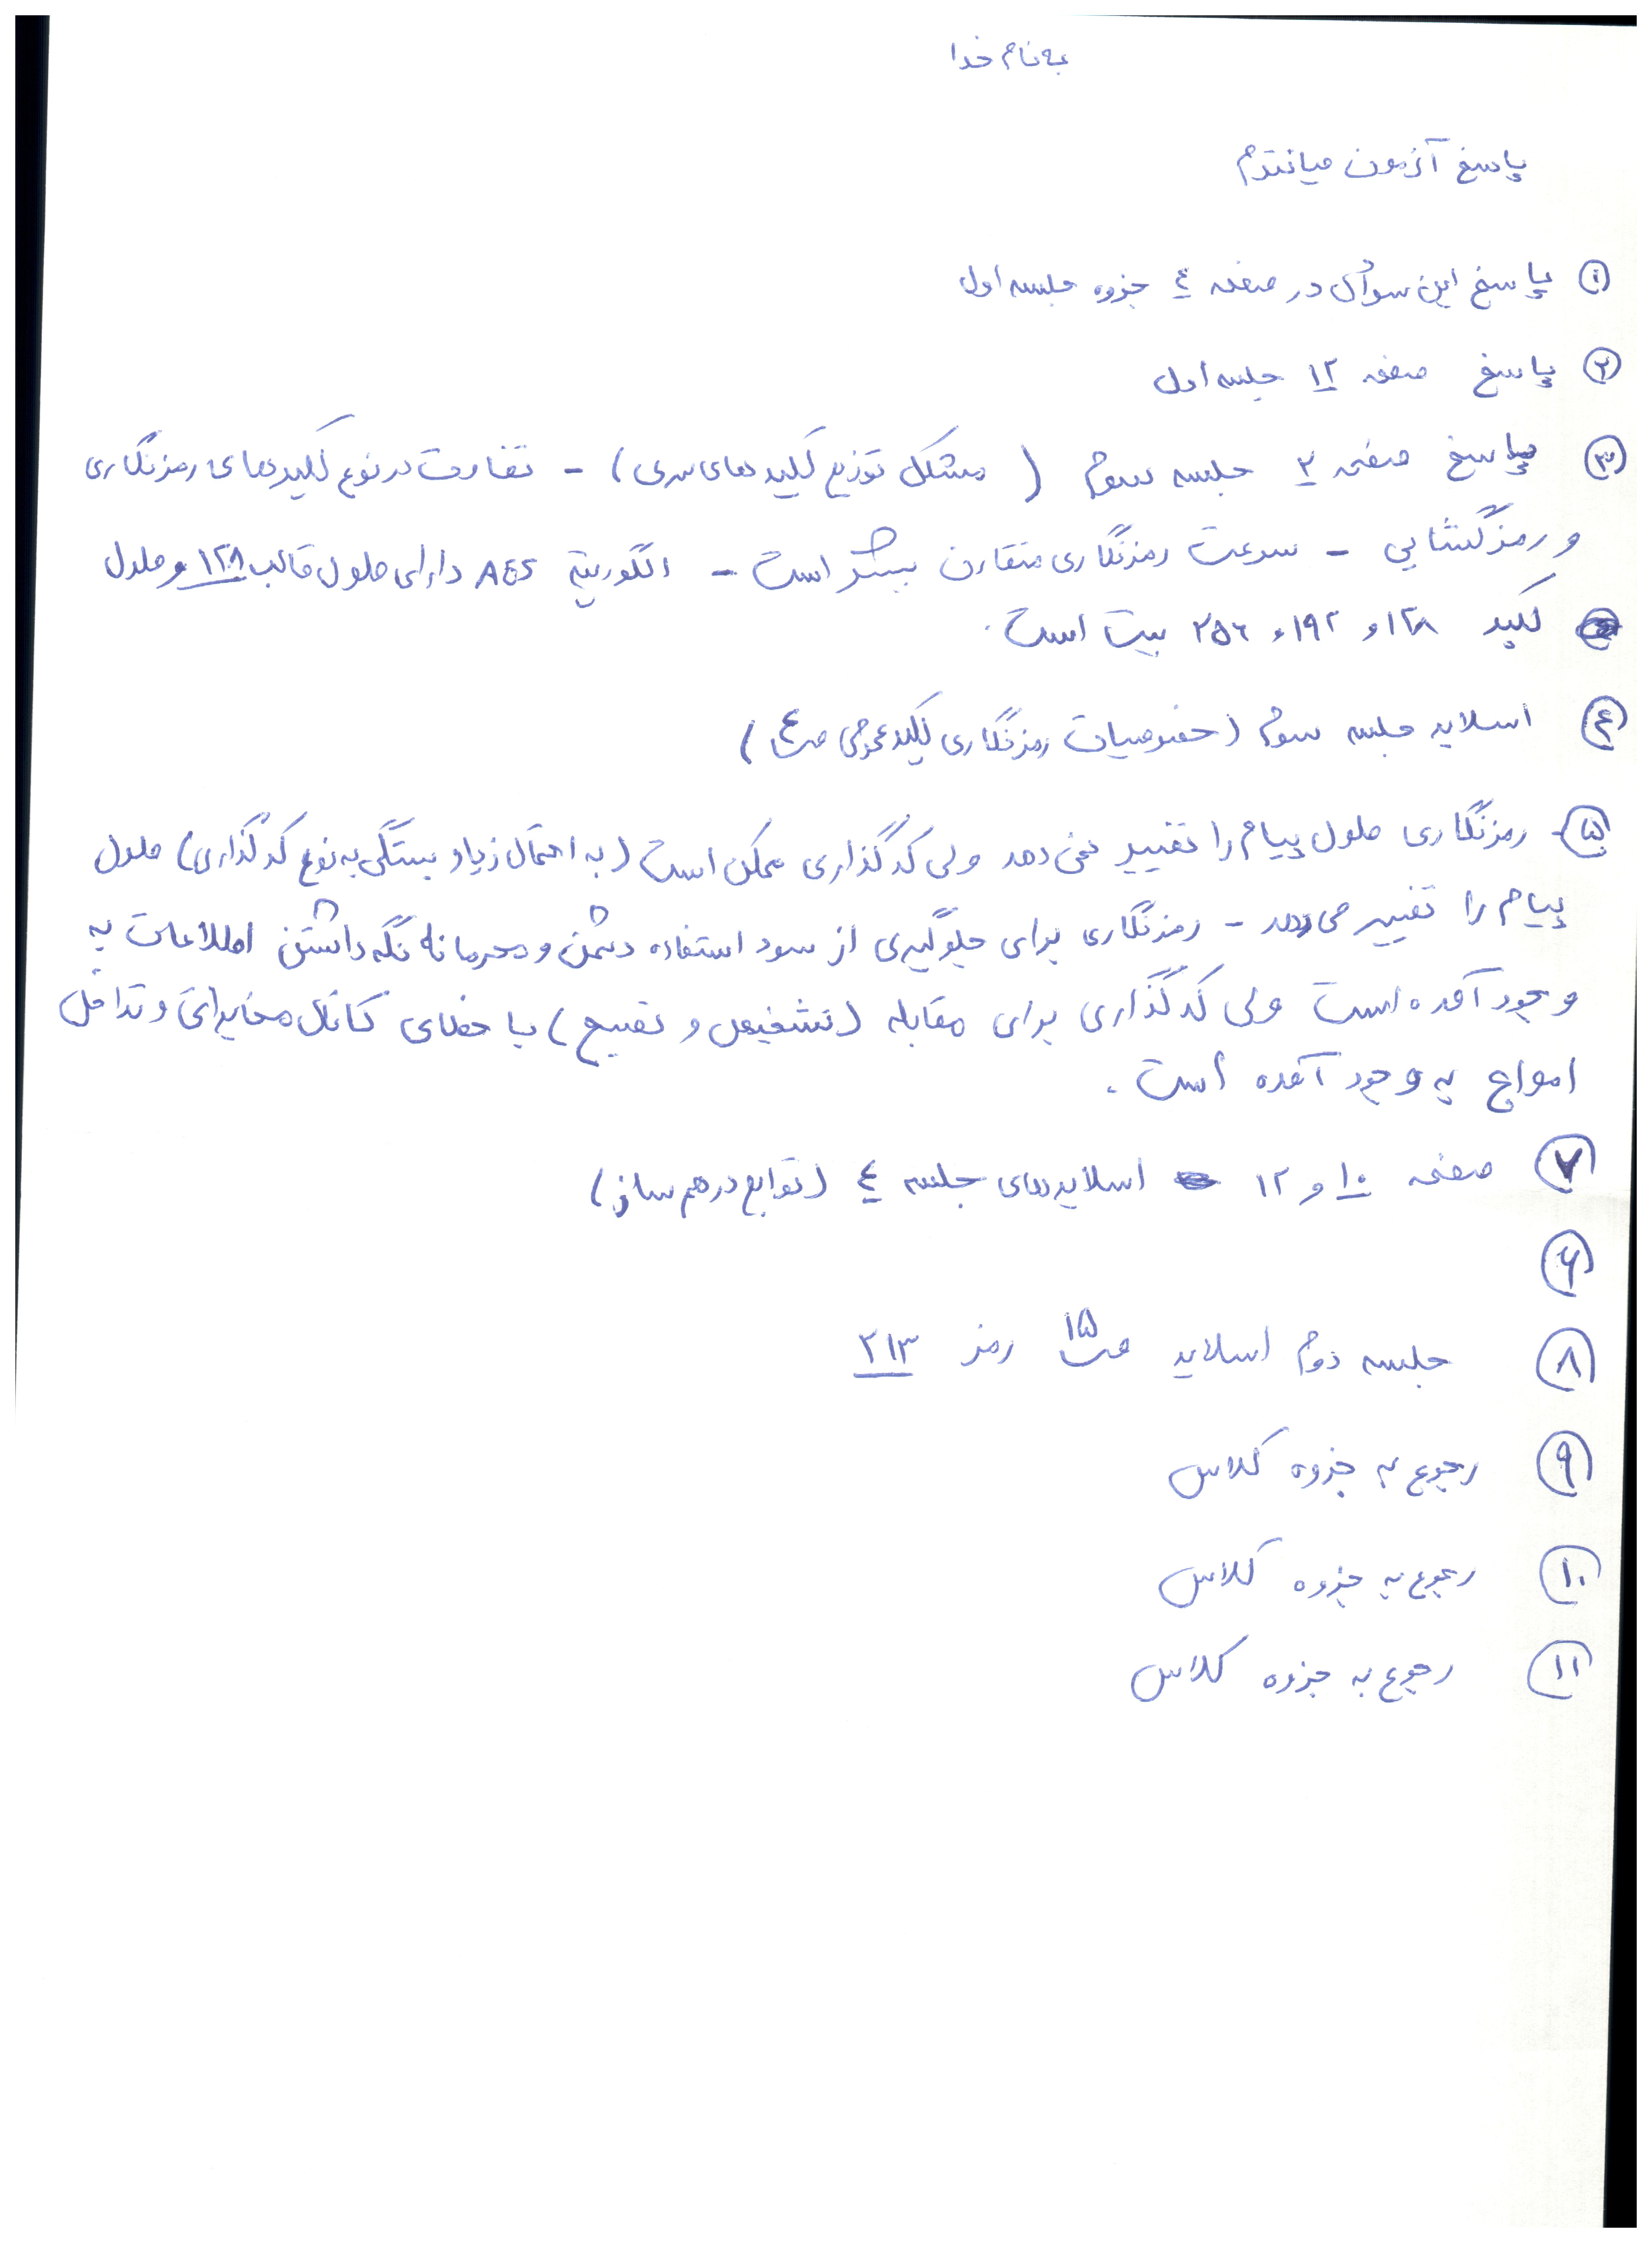 به نام خدا
پاسخ آزمون میانترم
① پاسخ این سوأل در صفحه ٤ جزوه جلسه اول
② پاسخ صفحه ۱۲ جلسه اول
③ پاسخ صفحه ۲ جلسه سوم ( مشکل توزیع کلیدهای سری) - تفاوت در نوع کلیدهای رمزنگاری
و رمزگشایی - سرعت رمزنگاری متقارن بیشتر است - الگوریتم AES دارای طول قالب ۱۲۸ و طول
کلید ۱۲۸ و ۱۹۲ و ۲۵۶ بیت است.
④ اسلاید جلسه سوم (خصوصیات رمزنگاری کلید عمومی ص ٤)
⑤- رمزنگاری طول پیام را تغییر نمی دهد ولی کدگذاری ممکن است (به احتمال زیاد بستگی به نوع کدگذاری) طول
پیام را تغییر می دهد - رمزنگاری برای جلوگیری از سود استفاده دشمن و محرمانه نگه داشتن اطلاعات به
وجود آمده است ولی کدگذاری برای مقابله (تشخیص و تصحیح) با خطای کانال مخابراتی و تداخل
امواج به وجود آمده است.
⑦ صفحه ۱۰ و ۱۲ اسلایدهای جلسه ٤ (توابع درهم ساز)
⑥
⑧ جلسه دوم اسلاید ص ۱۵ رمز ۲۱۳
⑨ رجوع به جزوه کلاس
⑩ رجوع به جزوه کلاس
⑪ رجوع به جزوه کلاس